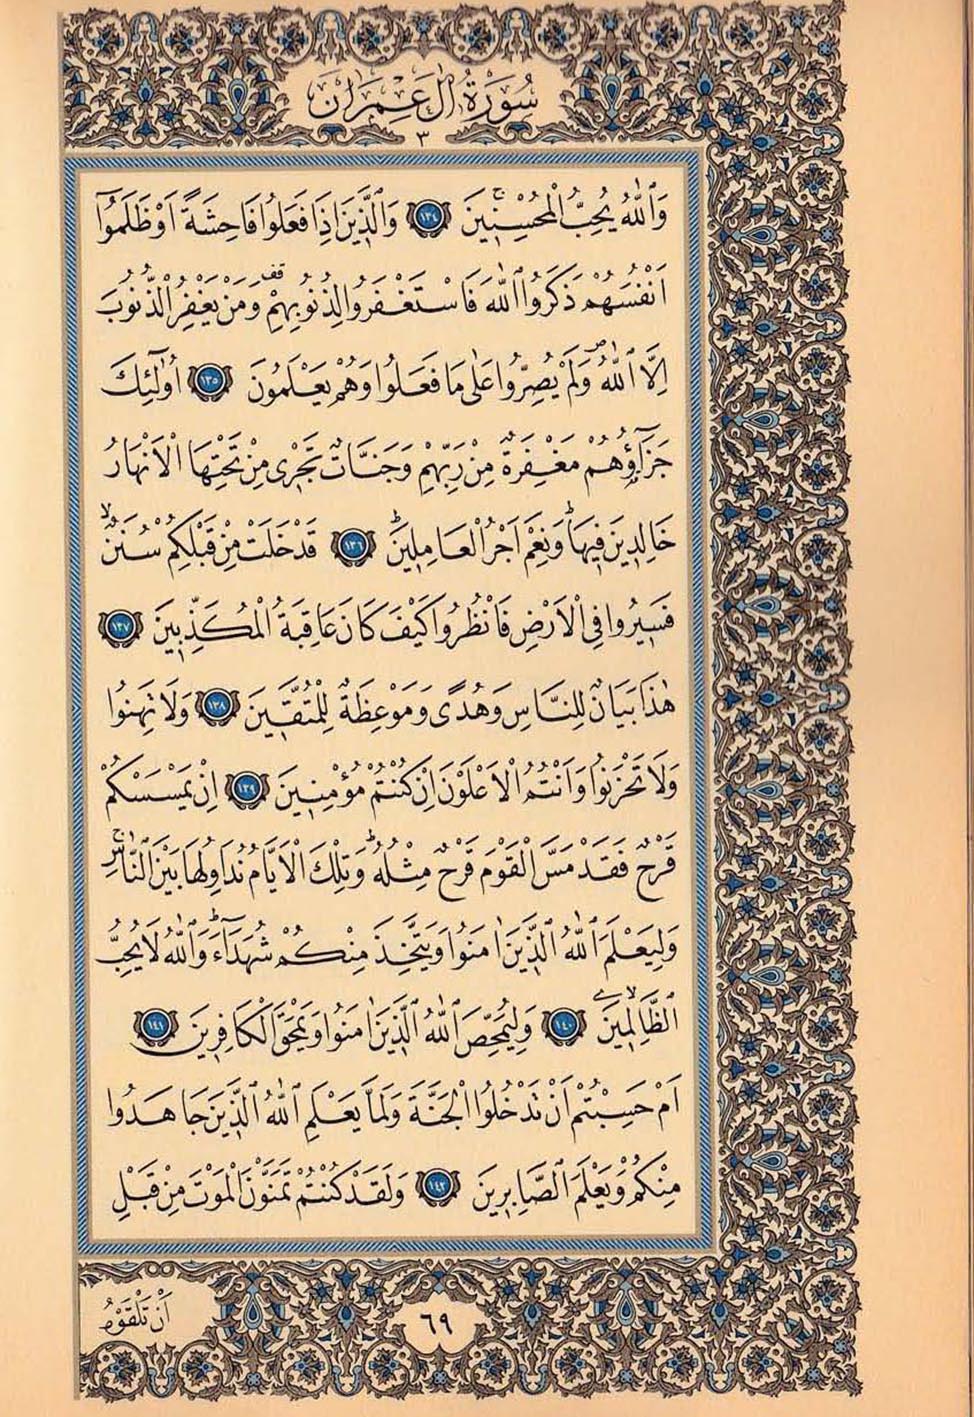 سُورَةُ اٰلِ عِمْرَانَ
٣
وَاللّٰهُ يُحِبُّ الْمُحْسِنِينَۚ ﴿١٣٤﴾ وَالَّذِينَ اِذَا فَعَلُوا فَاحِشَةً اَوْ ظَلَمُٓوا
اَنْفُسَهُمْ ذَكَرُوا اللّٰهَ فَاسْتَغْفَرُوا لِذُنُوبِهِمْࣕ وَمَنْ يَغْفِرُ الذُّنُوبَ
اِلَّا اللّٰهُࣕ وَلَمْ يُصِرُّوا عَلٰى مَا فَعَلُوا وَهُمْ يَعْلَمُونَ ﴿١٣٥﴾ اُو۬لٰٓئِكَ
جَزَٓاؤُ۬هُمْ مَغْفِرَةٌ مِنْ رَبِّهِمْ وَجَنَّاتٌ تَجْرِي مِنْ تَحْتِهَا الْاَنْهَارُ
خَالِدِينَ فِيهَاۜ وَنِعْمَ اَجْرُ الْعَامِلِينَۜ ﴿١٣٦﴾ قَدْ خَلَتْ مِنْ قَبْلِكُمْ سُنَنٌۙ
فَسِيرُوا فِي الْاَرْضِ فَانْظُرُوا كَيْفَ كَانَ عَاقِبَةُ الْمُكَذِّبِينَ ﴿١٣٧﴾
هٰذَا بَيَانٌ لِلنَّاسِ وَهُدًى وَمَوْعِظَةٌ لِلْمُتَّقِينَ ﴿١٣٨﴾ وَلَا تَهِنُوا
وَلَا تَحْزَنُوا وَاَنْتُمُ الْاَعْلَوْنَ اِنْ كُنْتُمْ مُؤْمِنِينَ ﴿١٣٩﴾ اِنْ يَمْسَسْكُمْ
قَرْحٌ فَقَدْ مَسَّ الْقَوْمَ قَرْحٌ مِثْلُهُۜ وَتِلْكَ الْاَيَّامُ نُدَاوِلُهَا بَيْنَ النَّاسِۚ
وَلِيَعْلَمَ اللّٰهُ الَّذِينَ اٰمَنُوا وَيَتَّخِذَ مِنْكُمْ شُهَدَٓاءَۜ وَاللّٰهُ لَا يُحِبُّ
الظَّالِمِينَۙ ﴿١٤٠﴾ وَلِيُمَحِّصَ اللّٰهُ الَّذِينَ اٰمَنُوا وَيَمْحَقَ الْكَافِرِينَ ﴿١٤١﴾
اَمْ حَسِبْتُمْ اَنْ تَدْخُلُوا الْجَنَّةَ وَلَمَّا يَعْلَمِ اللّٰهُ الَّذِينَ جَاهَدُوا
مِنْكُمْ وَيَعْلَمَ الصَّابِرِينَ ﴿١٤٢﴾ وَلَقَدْ كُنْتُمْ تَمَنَّوْنَ الْمَوْتَ مِنْ قَبْلِ
اَنْ تَلْقَوْهُ
٦٩